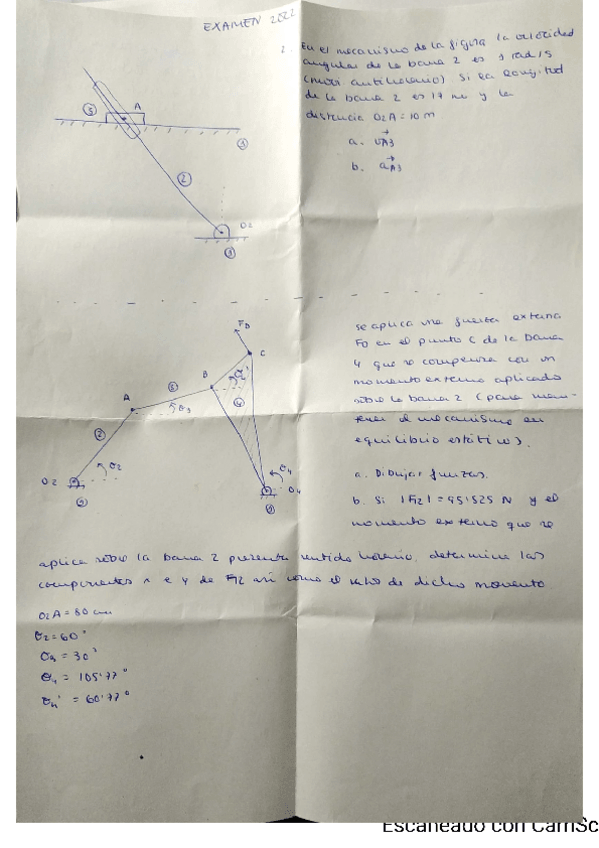 EXAMEN 2022
1. En el mecanismo de la figura la velocidad
angular de la barra 2 es 1 rad/s
(antihorario). Si la longitud
de la barra 2 es y la
distancia O2A = 10 m
a. vA3
b. aA3
A
3
3
2
O2
1
se aplica una fuerza externa
FD en el punto C de la barra
4 que se compensa con un
momento externo aplicado
sobre la barra 2 (para man-
tener el mecanismo en
equilibrio estático).
a. Dibujar fuerzas.
b. Si |F12| = 95'525 N y el
momento externo que se
aplica sobre la barra 2 presenta sentido horario, determina las
componentes x e y de F12 así como el valor de dicho momento
FD
C
B
A
3
4
θ3
2
O2
θ2
θ4
O4
O2A = 80 cm
θ2 = 60°
θ3 = 30°
θ4 = 105'77°
θ4' = 60'77°
Escaneado con CamSc